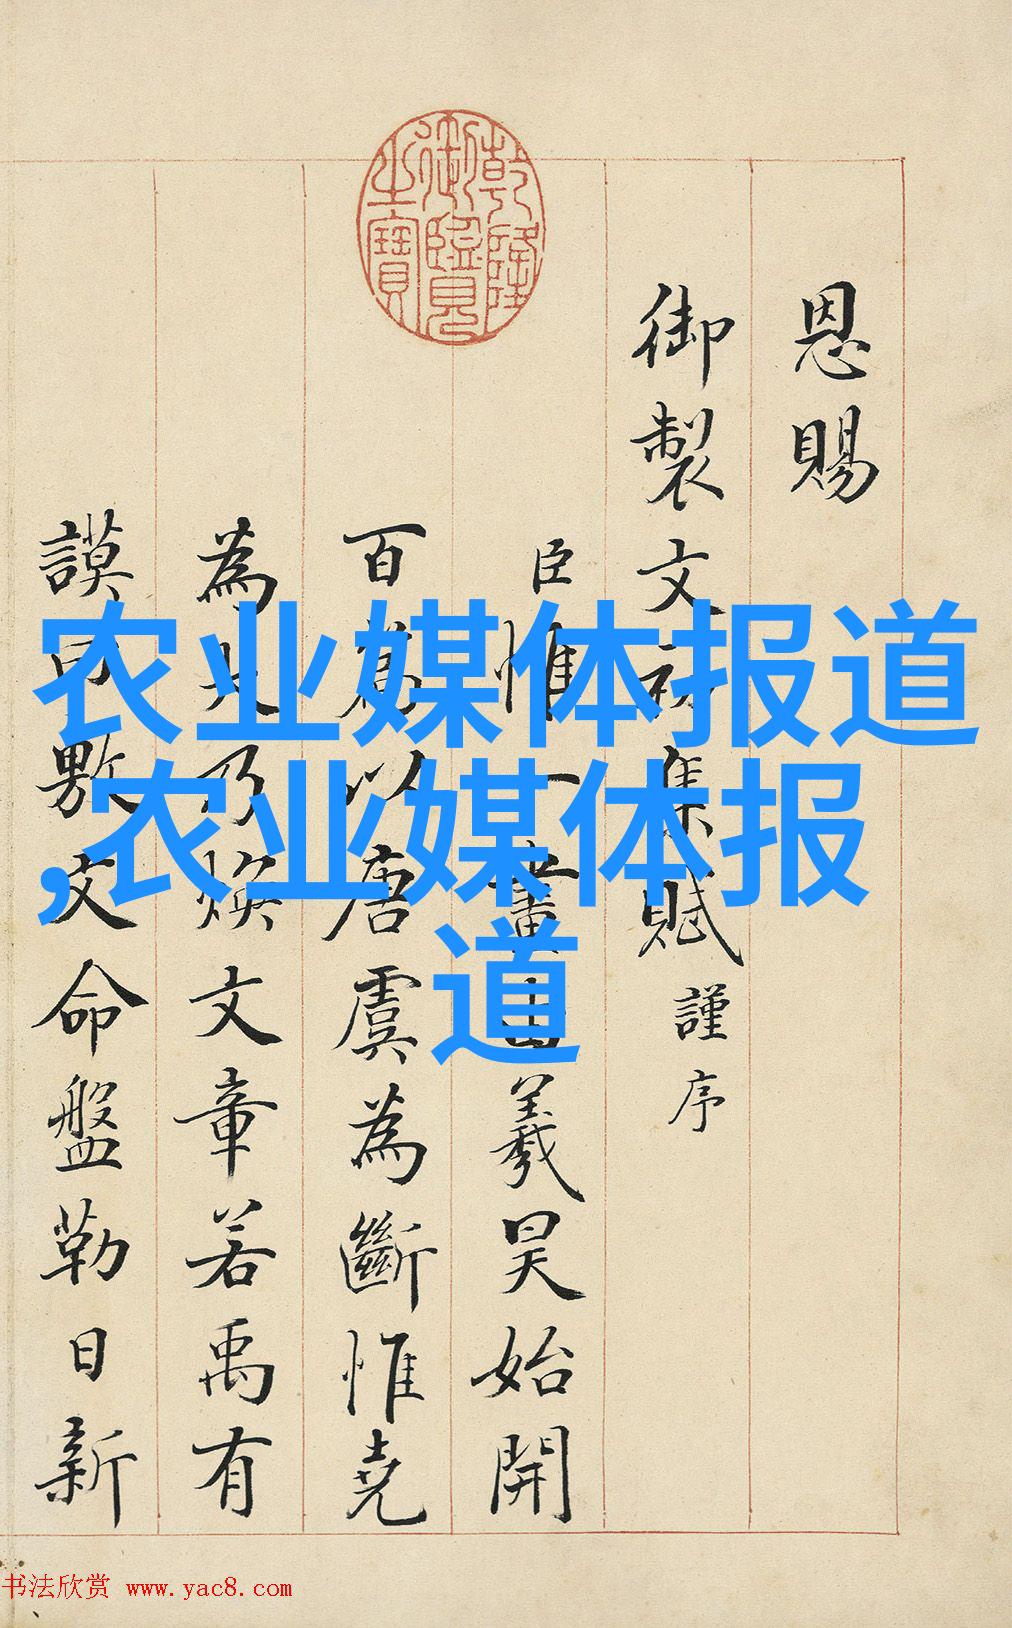 恩賜
御製文初集賦謹序
臣惟一畫由羲昊始開
百篇以唐虞為斷惟堯
為大乃煥文章若禹有
謨可敷文命盤勒日新
乾隆御覽之寶
农业媒体报道
,农业媒体报
道
书法欣赏 www.yac8.com